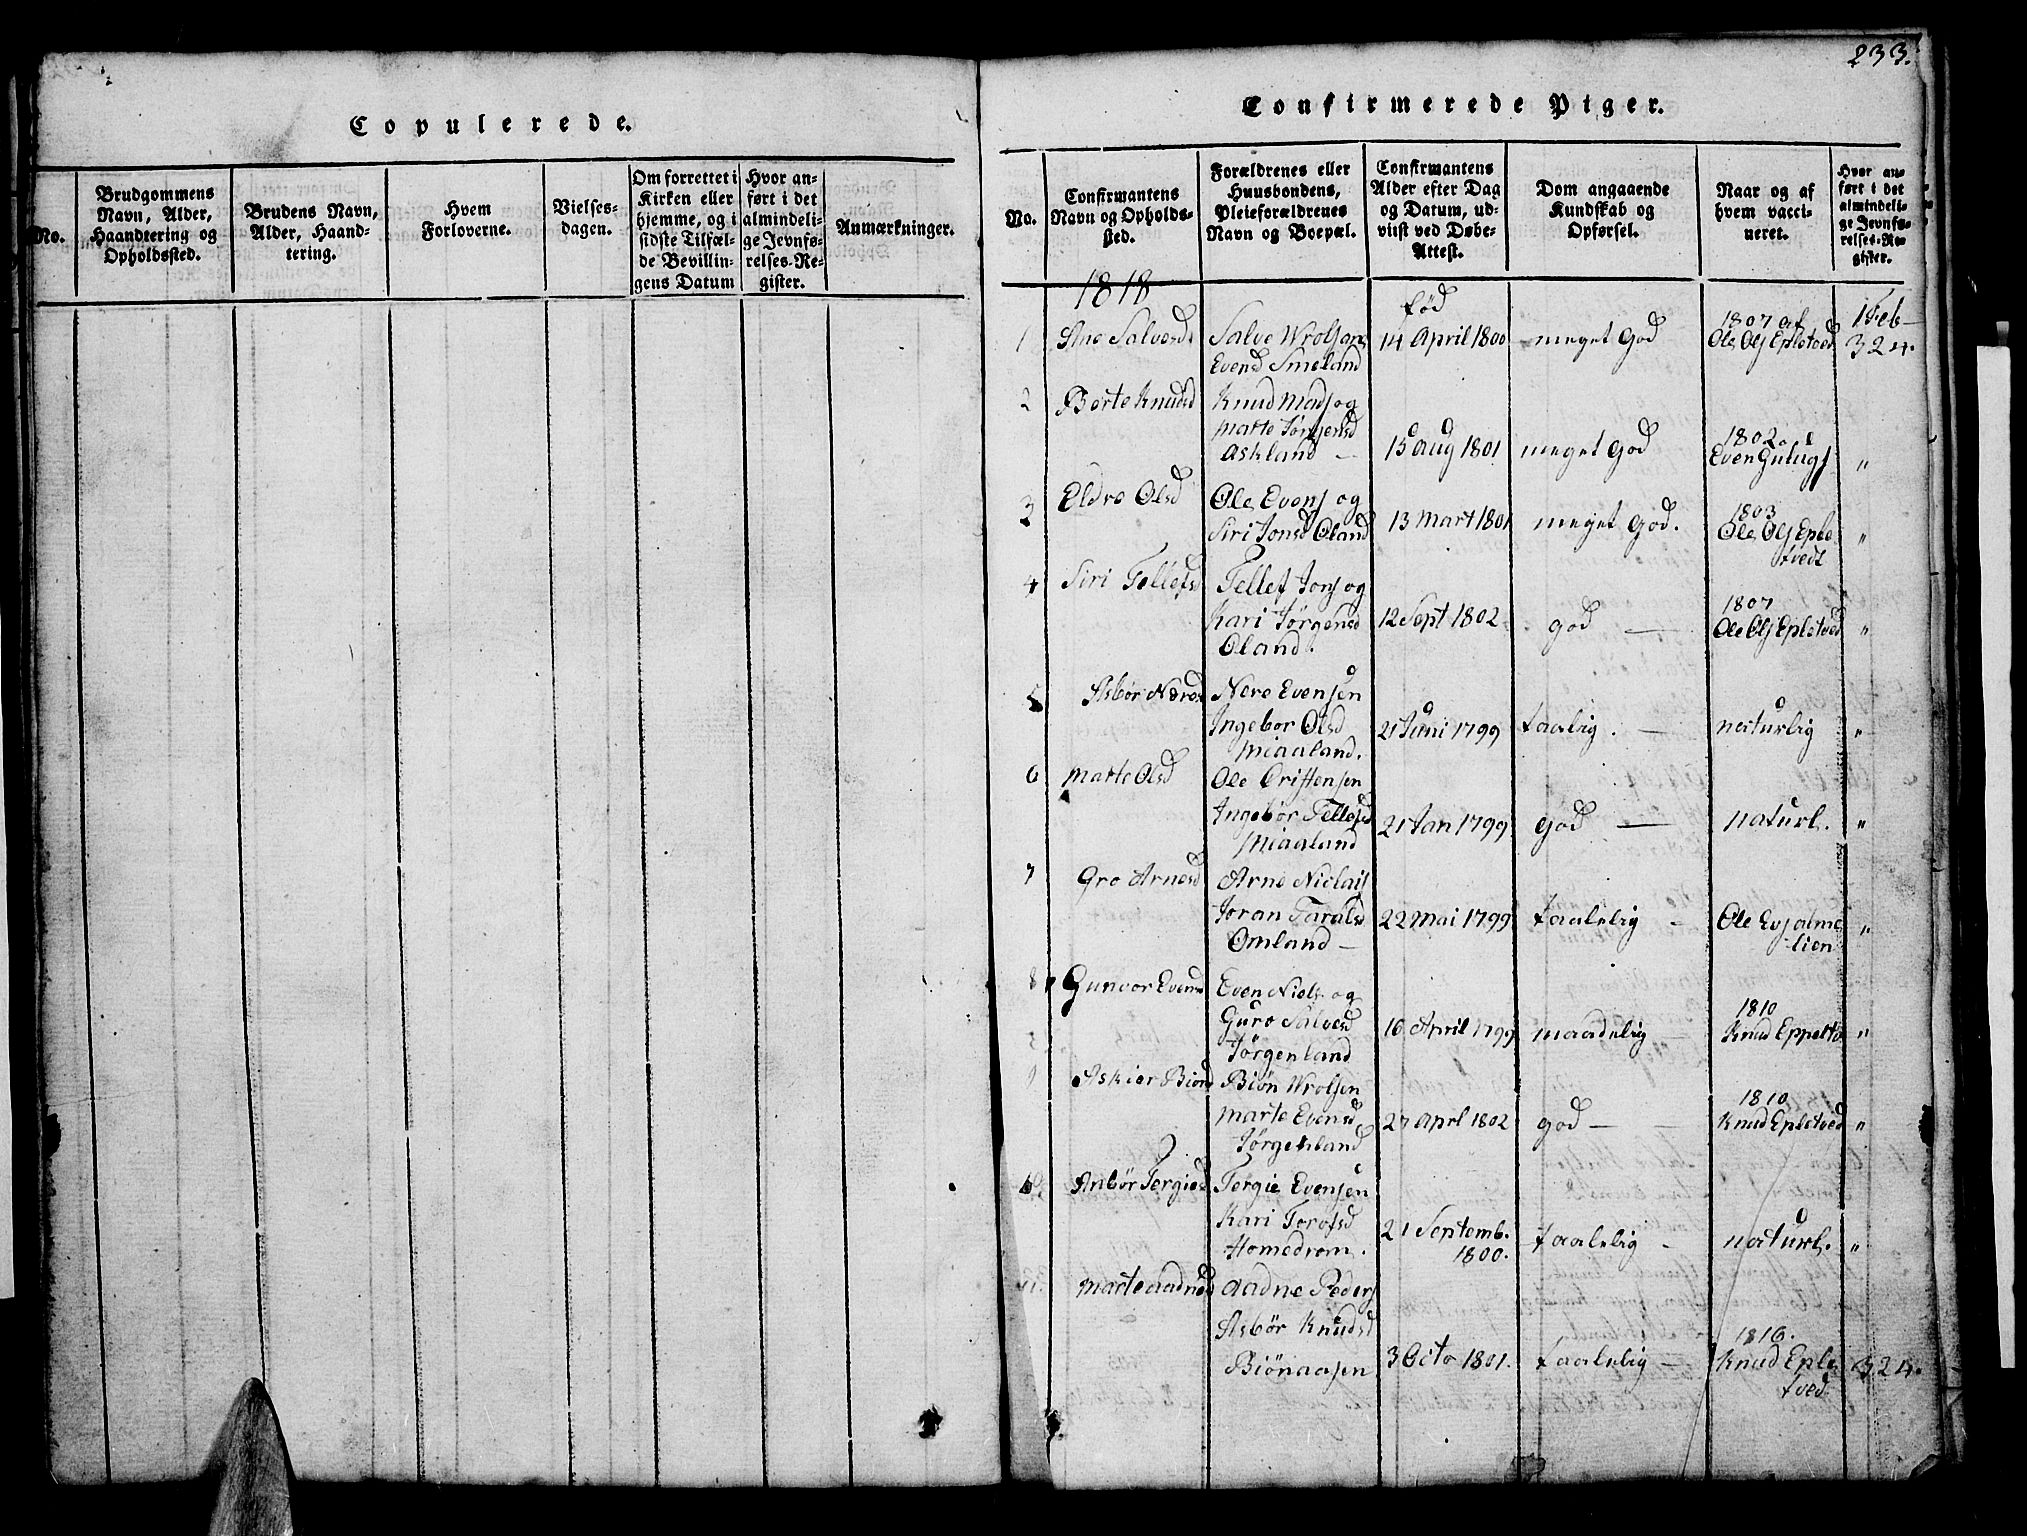 Copulerede.
No.
Brudgommens
Navn, Alder,
Haandtering og
Opholdssted.
Brudens Navn,
Alder, Haand-
tering.
Hvem
Forloverne.
Vielses-
dagen.
Om forrettet i
Kirken eller
hjemme, og i
sidste Tilfæl-
de Bevillin-
gens Datum
Hvor an-
ført i det
almindeli-
ge Jevnfø-
relses-Re-
gister.
Anmærkninger.
233.
Confirmerede Piger.
No.
Confirmantens
Navn og Opholds-
sted.
Forældrenes eller
Huusbondens,
Pleieforældrenes
Navn og Boepæl.
Confirmantens
Alder efter Dag
og Datum, ud-
viist ved Døbe-
Attest.
Dom angaaende
Kundskab og
Opførsel.
Naar og af
hvem vacci-
neret.
Hvor an-
ført i det
almindeli-
ge Jevnfø-
relses-Re-
gister.
1818
fød
1 Ane Salvesd Salve Wrolsen 14 April 1800 meget God 1807 af Ole Ols Epletved 1 Feb 324.
Evensd Smeland
2 Berte Knudsd Knud Mads og
Marte Jørgensd
Askland 15 Aug 1801 meget God 1802 Even Gulugs "
3 Eldre Olsd Ole Evens og
Siri Jonsd Oland 13 Mart 1801 meget God. 1803 Ole Ols Eple
tvedt "
4 Siri Tellefsd Tellef Jons og
Kari Jørgensd 12 Sept 1802 god 1807 Ole Ols Epletved "
Oland.
5 Asbør Neresd Nere Evensen
Ingebor Olsd 21 Juni 1799 taalig. naturlig "
Miaaland.
6 Marte Olsd Ole Cristensen
Ingebør Tellefsd 21 Jan 1799 god naturl. "
Miaaland
7 Gro Arnesd Arne Niclais
Joran Taralsd 22 Mai 1799 taalelig Ole Evjome
lien "
Omland
8 Gunvor Evens Even Niels og
Guro Salvesd 16 April 1799 maadelig 1810 Knud Eppeltv "
Jørgenland
9 Askier Biønd Biøn Wrolsen
Marte Evensd 27 Aprl 1802 god 1810 Knud Epletved "
Jørgenland
Anbør Tergiesd Tergie Evensen
Kari Torofsd 21 Septemb.
1800. taalelig naturl. "
Homedrom.
11. Marte Aadnesd Aadne Peders
Asbør Knudsd
Biønaasen 3 Octo 1801. taalelig 1816. Knud Eple
tved 324.